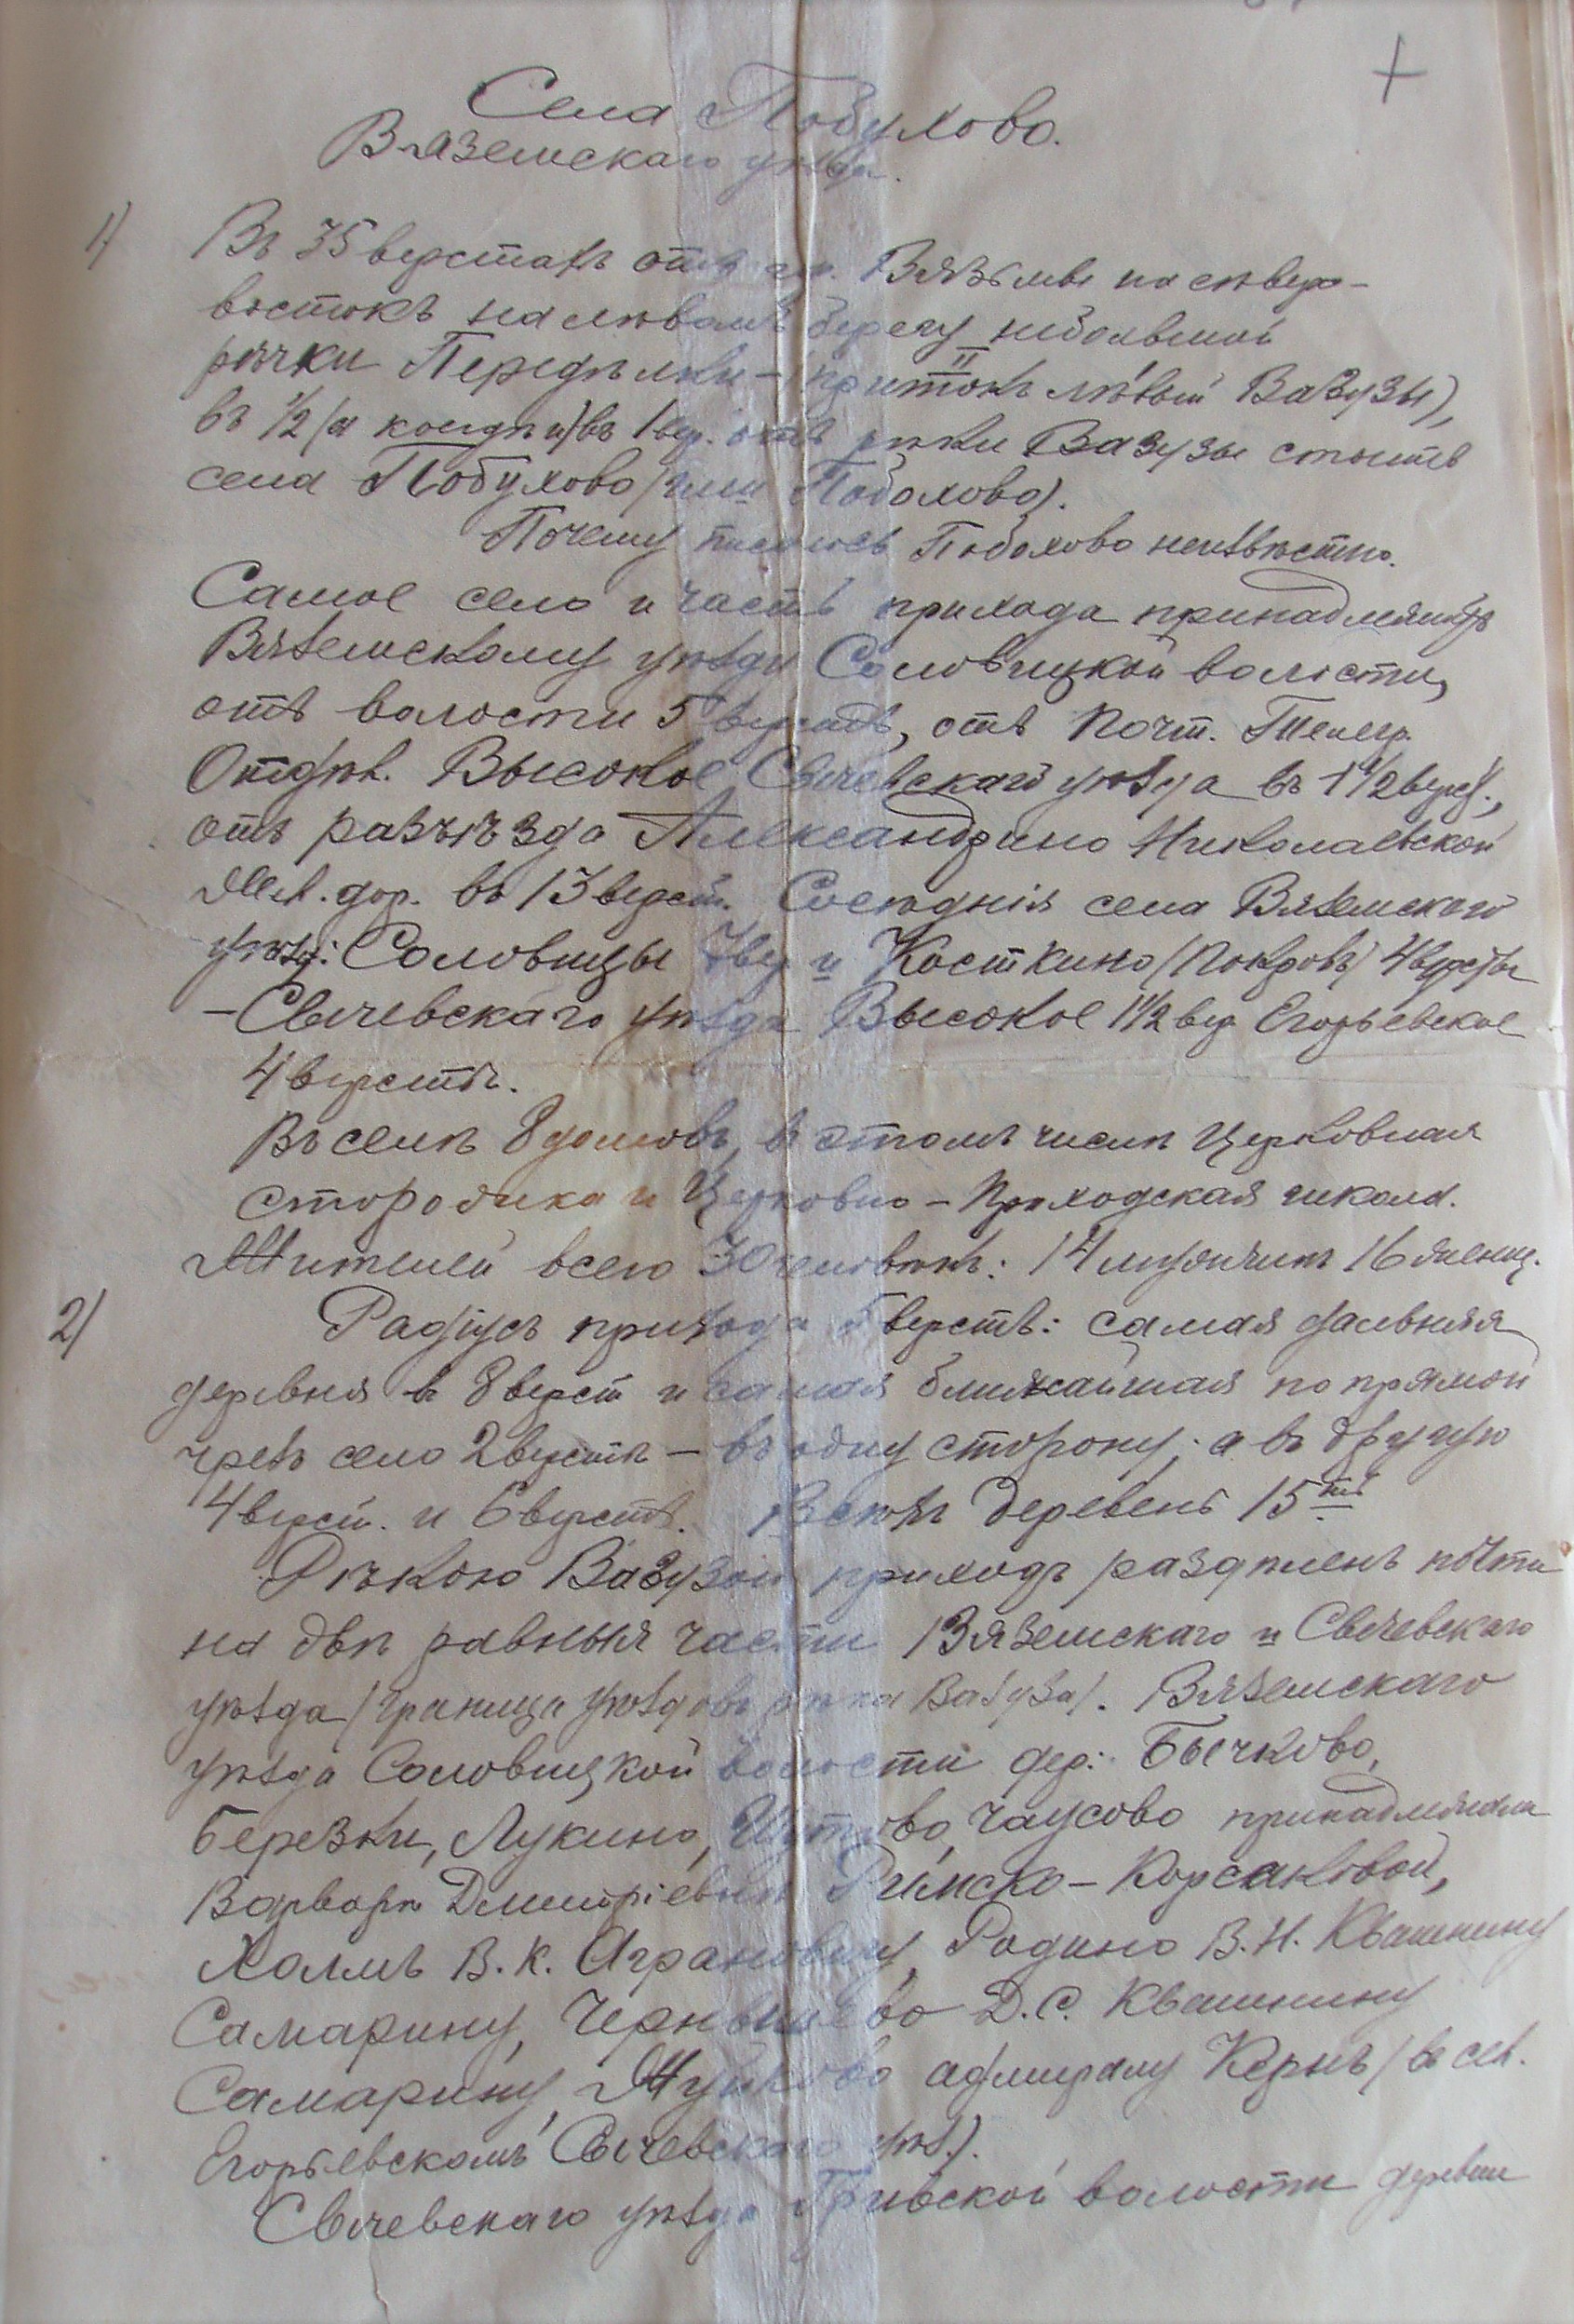 Села Побухово.
Вяземскаго уѣзда.
1) Въ 35 верстахъ отъ гор. Вязьмы на сѣверо-
востокъ на лѣвомъ берегу небольшой
рѣчки Передѣлки – (притокъ лѣвый Вазузы),
въ 1/2 (а кой гдѣ и) въ 1 вер. отъ рѣки Вазузы стоитъ
село Побухово (или Поболово).
Почему писалось Поболово неизвѣстно.
Самое село и часть прихода принадлежитъ
Вяземскому уѣзду Соловицкой волости,
отъ волости 5 верстъ, отъ Почт. Телегр.
Отдѣл. Высокое Сычевскаго уѣзда въ 1 1/2 верст.,
отъ разъѣзда Александрино Николаевской
Жел. дор. въ 13 верст. Сосѣднія села Вяземскаго
уѣзд: Соловицы 7 вер и Косткино (Покровъ) 4 версты
– Сычевскаго уѣзда Высокое 1 1/2 вер Егорьевское
4 версты.
Въ селѣ 8 домовъ, въ этомъ числѣ Церковная
сторожка и Церковно-Приходская школа.
Жителей всего 30 человѣкъ: 14 мужчинъ 16 женщ.
2) Радіусъ прихода 5 верстъ: самая дальняя
деревня въ 8 верст и самая ближайшая по прямой
чрезъ село 2 верстъ – въ одну сторону; а въ другую
4 верст. и 6 верстъ. Всѣхъ деревень 15ть
Рѣкою Вазузой приходъ раздѣленъ почти
на двѣ равныя части Вяземскаго и Сычевскаго
уѣзда (граница уѣздовъ рѣка Вазуза). Вяземскаго
уѣзда Соловицкой волости дер: Бычково,
Березки, Лукино, Чаусово принадлежали
Варварѣ Дмитріевнѣ Римско-Корсаковой,
Холмъ В. К. Аграновичу, Родино В. Н. Квашнину
Самарину, Чернышево Д. С. Квашнину
Самарину, Жуково адмиралу Кернъ (въ сел.
Егорьевскомъ Сычевскаго уѣз.).
Сычевскаго уѣзда Гривской волости деревни